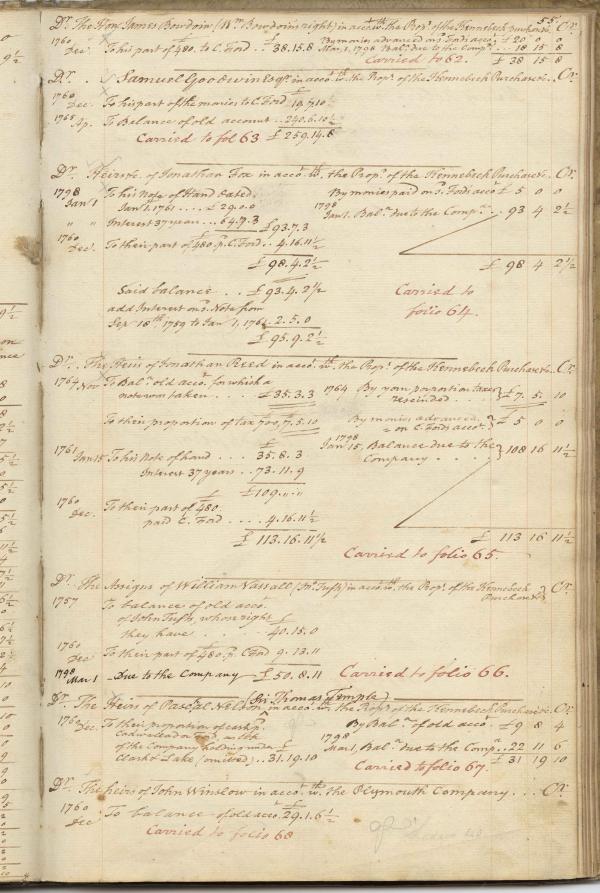 55.
Dr. The Hon. James Bowdoin (Wm. Bowdoin's right) in acco. wth. the Props. of the Kennebeck purchase. Cr.
1760
Dec. To his part of 480. to C. Ford . £ 38.15.8 By monies advanced on s. Fords acco. £ 20 0 0
Mar. 1, 1798 Bal. due to the Comp. .. 18 15 8
Carried to 62. £ 38 15 8
Dr. Samuel Goodwin Esqr. in acco. wth. the Props. of the Kennebeck Purchase. Cr.
1760
Dec. To his part of the monies to C. Ford 19.7.10½
1765 Ap. To Balance of old account .. 240.6.10½
Carried to fol 63 £ 259.14.8
Dr. Heirs &c. of Jonathan Fox in acco. wth. the Props. of the Kennebeck Purchase. Cr.
1798 To his Note of Hand dated By monies paid on s. Fords acco. £ 5 0 0
Jany. 1 Jany. 1, 1761 ... £ 29.0.0 1798
" " Interest 37 year .. 64.7.3 £ 93.7.3 Jany. 1. Bal. due to the Comp. .. 93 4 2½
1760
Dec. To their part of £480. p. C. Ford .. 4.16.11½
£ 98.4.2½ £ 98 4 2½
Said balance . £ 93.4.2½ Carried to
add Interest on s. Note from folio 64.
Sep 18th 1759 to Jan. 1, 1761 . 2.5.0
£ 95.9.2½
Dr. The Heirs of Jonathan Reed in acco. w. the Props. of the Kennebeck Purchase. Cr.
1764 Nov To Bal. old acco. for which a 1764 By your porportion taxes
note was taken .. £ 35.3.3 rescinded . . £ 7. 5. 10
To their proportion of tax 700, 7.5.10 By monies advanced
on C. Fords acco. £ 5 0 0
1761 1798
Jan 15 To his Note of hand . . . 35.8.3 Jany. 15. Balance due to the
Interest 37 years .. 73.11.9 Company . . . 108 16 11½
£ 109. " . "
1760
Dec. To their part of £480.
paid C. Ford .... 4.16.11½
£ 113.16.11½ £ 113 16 11½
Carried to folio 65.
Dr. The Assigns of William Vassall (Jno. Tufts) in acco. wth. the Props. of the Kennebeck Purchase Cr.
1757 To balance of old acco.
of John Tufts, whose right £
they have . . . 40.15.0
1760
Dec To their part of £480. p. C Ford 9.13.11
1798
Mar 1 Due to the Company £ 50.8.11 Carried to folio 66.
(Sir Thomas Temple)
Dr. The Heirs of Paschal Nelson in acco. w. the Props. of the Kennebeck Purchase. Cr.
1760 Dec. To their proportion of cash p. By Bal. of old acco. £ 9 8 4
1798
of the Company holding under £ Mar 1, Bal. due to the Comp. .. 22 11 6
Clark & Lake (omitted) .. 31.19.10 £ 31 19 10
Carried to folio 67.
Dr. The heirs of John Winslow in acco. wth. the Plymouth Company . . . Cr.
1760
Dec. To balance of old acco. £ 29.1.6½
Carried to folio 68